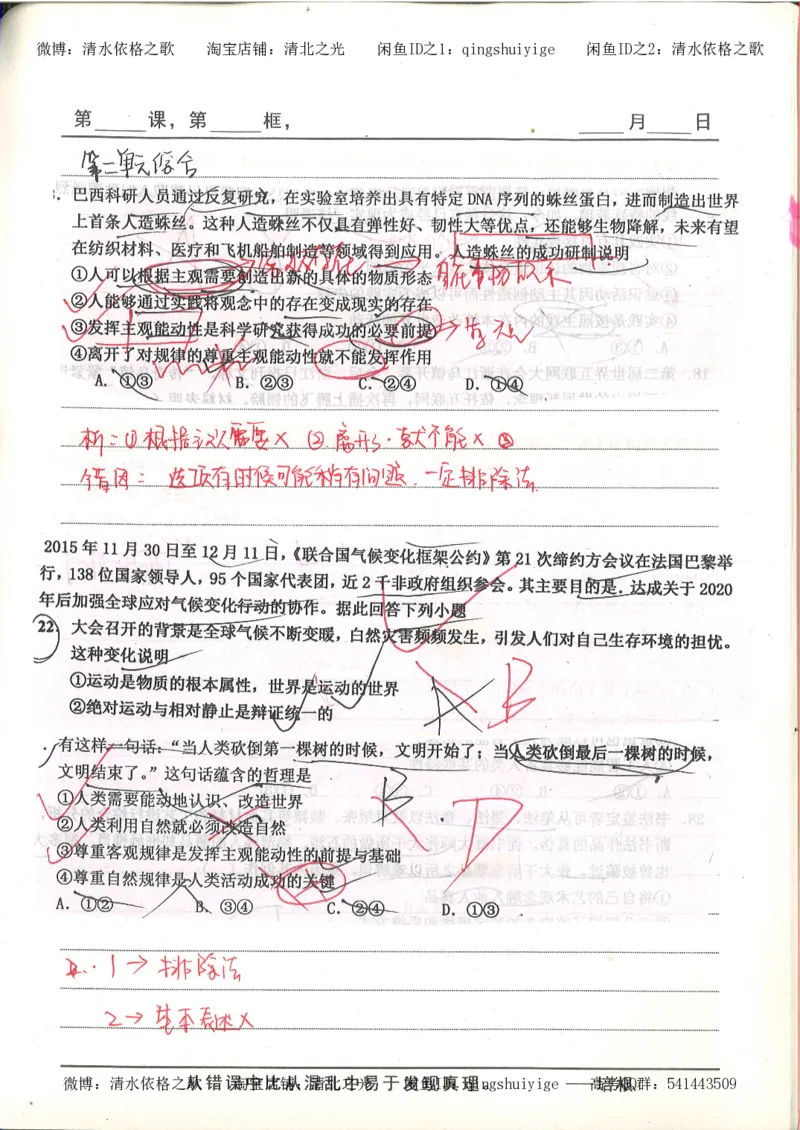 微博：清水依格之歌 淘宝店铺：清北之光 闲鱼ID之1：qingshuiyige 闲鱼ID之2：清水依格之歌
第____课，第____框， ____月____日
第二单元综合
巴西科研人员通过反复研究，在实验室培养出具有特定 DNA 序列的蛛丝蛋白，进而制造出世界
上首条人造蛛丝。这种人造蛛丝不仅具有弹性好、韧性大等优点，还能够生物降解，未来有望
在纺织材料、医疗和飞机船舶制造等领域得到应用。人造蛛丝的成功研制说明
①人可以根据主观需要创造出新的具体的物质形态
②人能够通过实践将观念中的存在变成现实的存在
③发挥主观能动性是科学研究获得成功的必要前提
④离开了对规律的尊重主观能动性就不能发挥作用
A. ①③ B. ②③ C. ②④ D. ①④
析：①根据主观需要× ②离开了·就不能×
错因：选项有时候可能稍有问题.一定排除法
2015 年 11 月 30 日至 12 月 11 日，《联合国气候变化框架公约》第 21 次缔约方会议在法国巴黎举
行，138 位国家领导人，95 个国家代表团，近 2 千非政府组织参会。其主要目的是．达成关于 2020
年后加强全球应对气候变化行动的协作。据此回答下列小题
22. 大会召开的背景是全球气候不断变暖，自然灾害频频发生，引发人们对自己生存环境的担忧。
这种变化说明
①运动是物质的根本属性，世界是运动的世界
②绝对运动与相对静止是辩证统一的
A B
有这样一句话：“当人类砍倒第一棵树的时候，文明开始了；当人类砍倒最后一棵树的时候，
文明结束了。”这句话蕴含的哲理是
①人类需要能动地认识、改造世界
②人类利用自然就必须改造自然
③尊重客观规律是发挥主观能动性的前提与基础
④尊重自然规律是人类活动成功的关键
B. D
A. ①② B. ③④ C. ②④ D. ①③
1→排除法
2→基本表述×
微博：清水依格之歌 淘宝店铺：清北之光 闲鱼ID之1：qingshuiyige 高学QQ群：541443509
从错误中比从混乱中易于发现真理。 ——培根